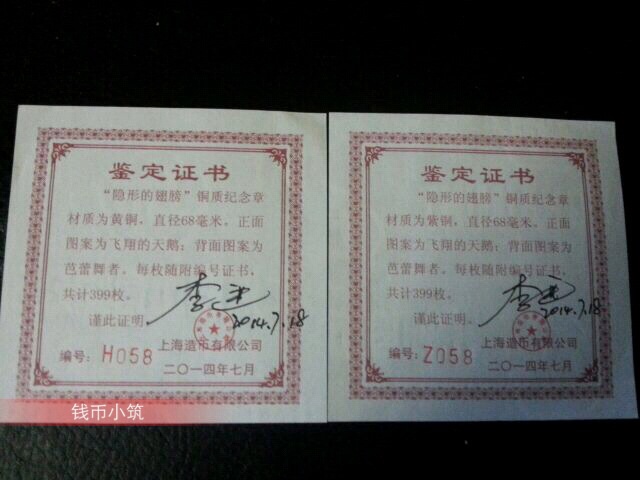 鉴定证书
“隐形的翅膀”铜质纪念章
材质为黄铜，直径68毫米。正面
图案为飞翔的天鹅；背面图案为
芭蕾舞者。每枚随附编号证书，
共计399枚。
谨此证明。
2014.7.18
上海造币有限公司
编号：H058
二〇一四年七月
鉴定证书
“隐形的翅膀”铜质纪念章
材质为紫铜，直径68毫米。正面
图案为飞翔的天鹅；背面图案为
芭蕾舞者。每枚随附编号证书，
共计399枚。
谨此证明。
2014.7.18
上海造币有限公司
编号：Z058
二〇一四年七月
钱币小筑